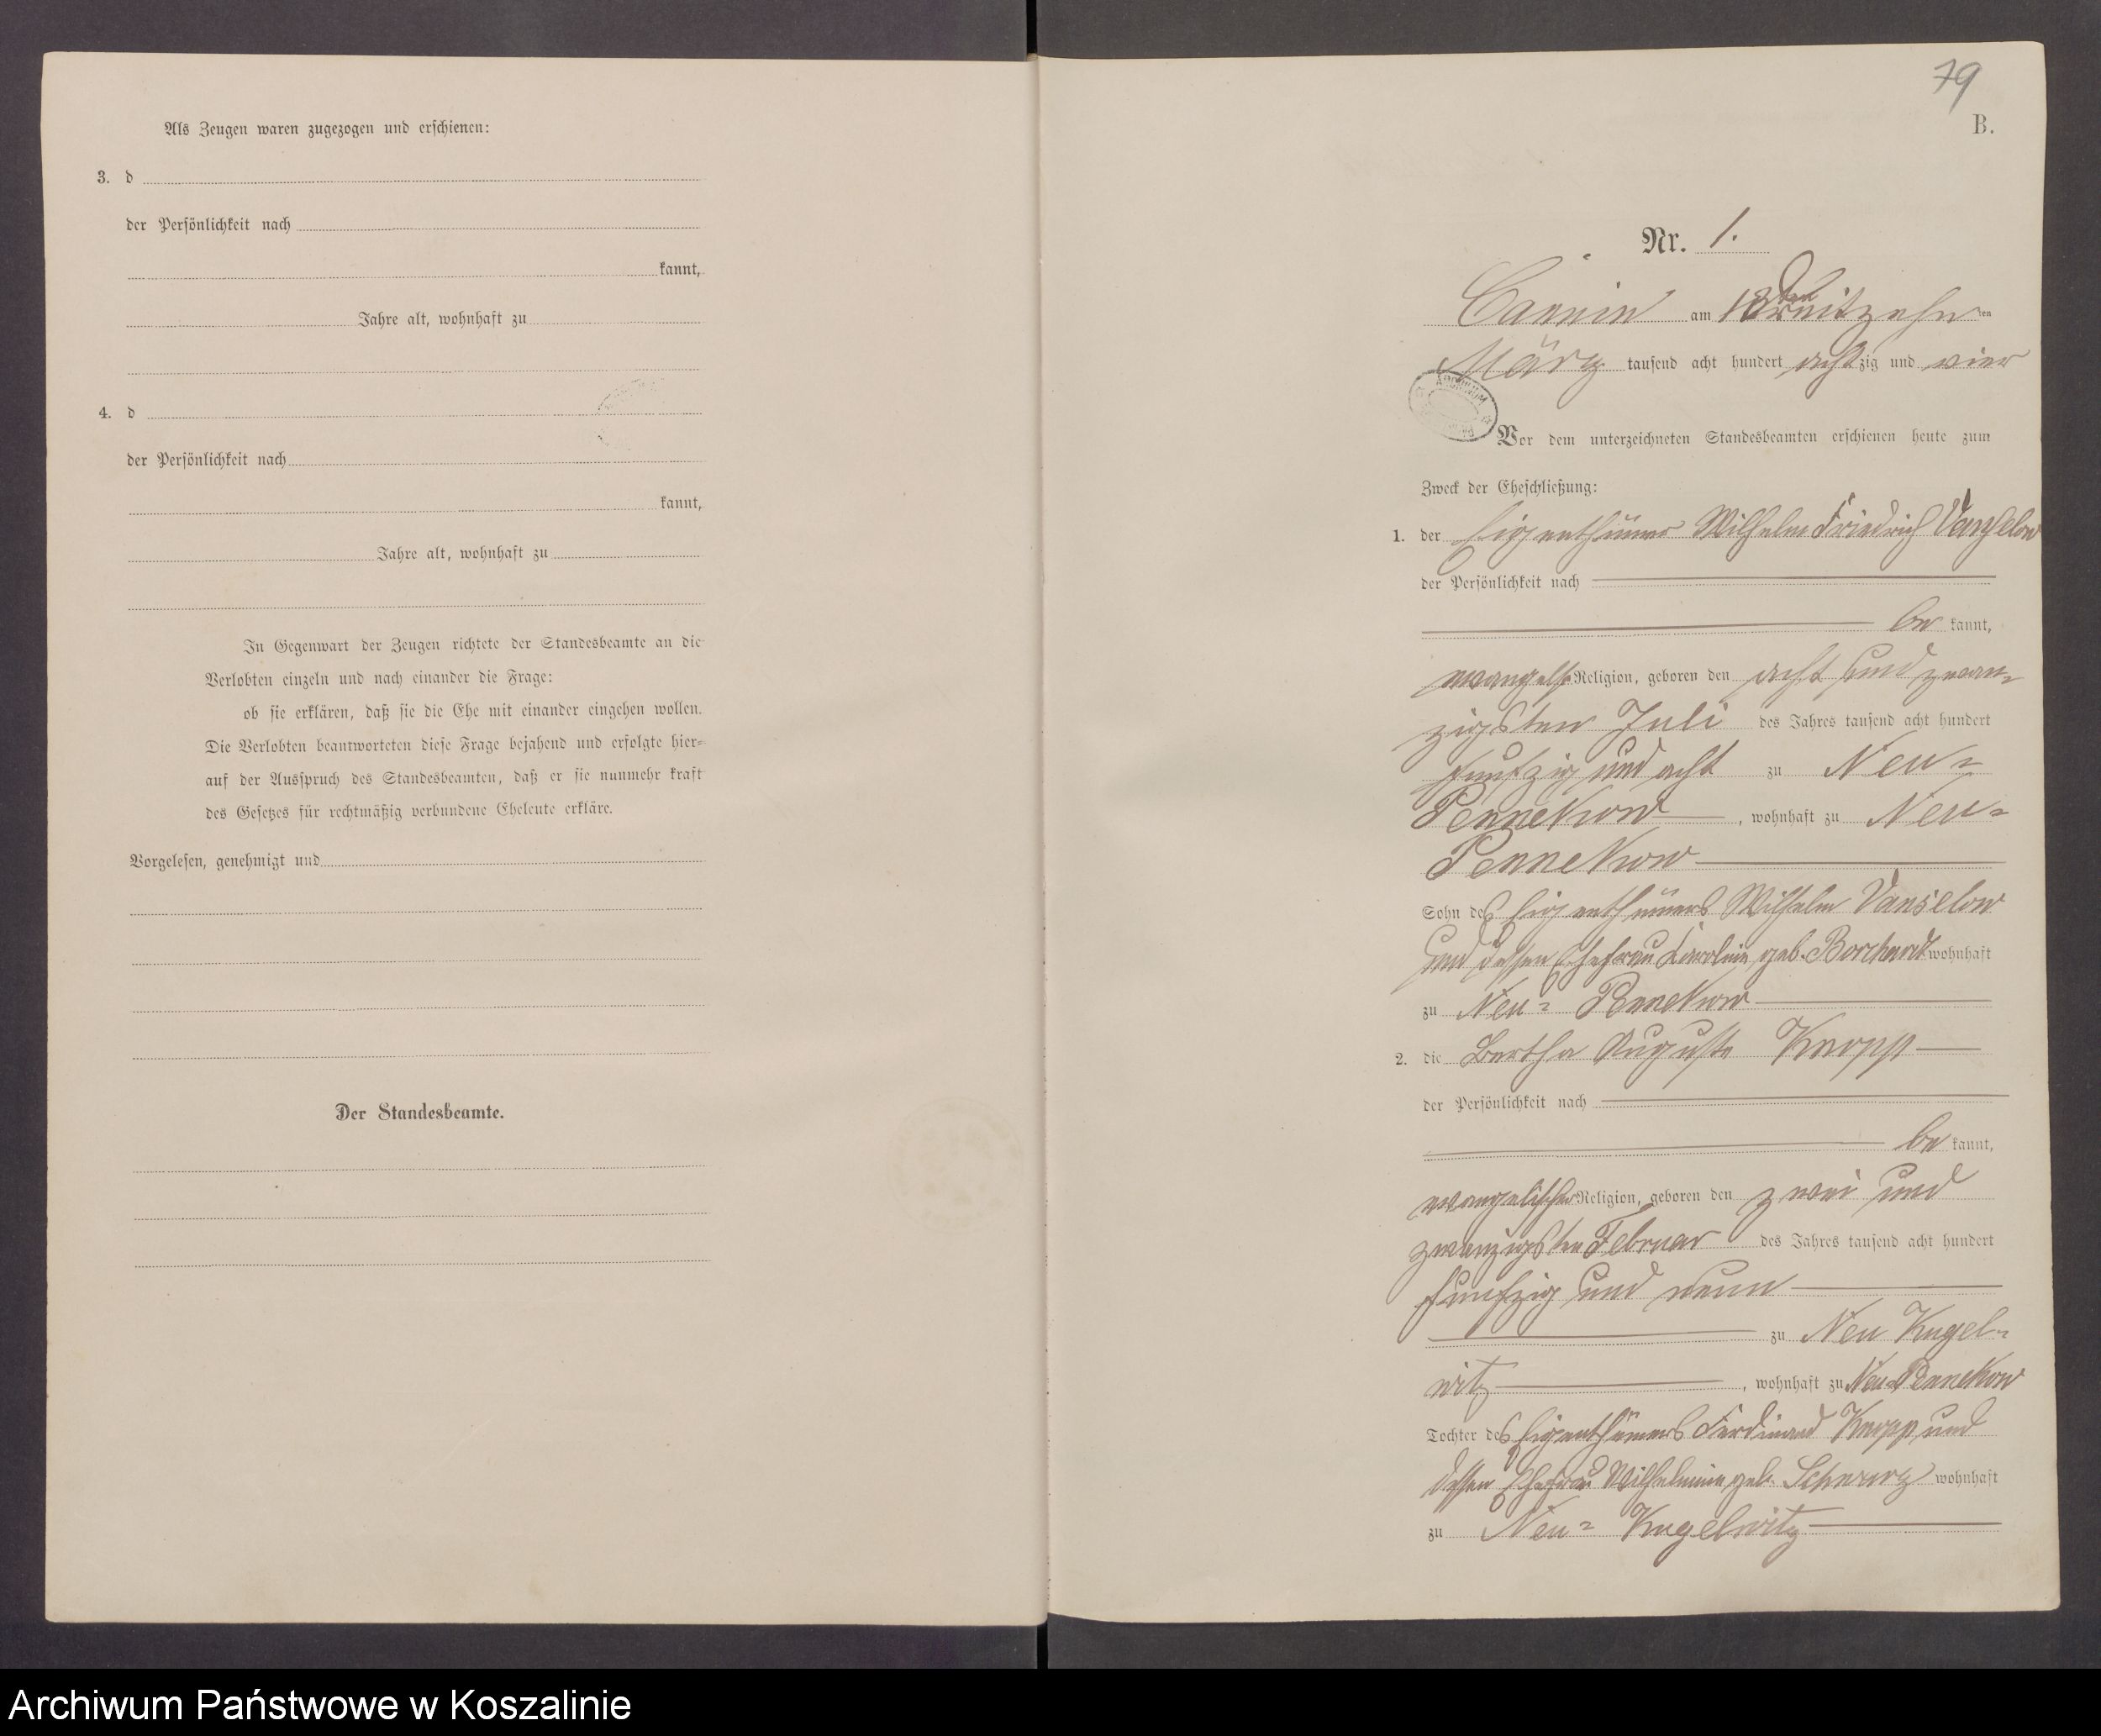 Als Zeugen waren zugezogen und erschienen:
3. d
der Persönlichkeit nach
kannt,
Jahre alt, wohnhaft zu
4. d
der Persönlichkeit nach
kannt,
Jahre alt, wohnhaft zu
In Gegenwart der Zeugen richtete der Standesbeamte an die
Verlobten einzeln und nach einander die Frage:
ob sie erklären, daß sie die Ehe mit einander eingehen wollen.
Die Verlobten beantworteten diese Frage bejahend und erfolgte hier=
auf der Ausspruch des Standesbeamten, daß er sie nunmehr kraft
des Gesetzes für rechtmäßig verbundene Eheleute erkläre.
Vorgelesen, genehmigt und
Der Standesbeamte.
79
B.
Nr. 1.
am ten
März tausend acht hundert achtzig und vier
ARCHIWUM
Vor dem unterzeichneten Standesbeamten erschienen heute zum
Zweck der Eheschließung:
1. der Eigenthümer Wilhelm Friedrich Vanselow
der Persönlichkeit nach
be kannt,
evangelsch Religion, geboren den acht und zwan=
zigsten Juli des Jahres tausend acht hundert
funfzig und acht zu Neu=
Pennekow, wohnhaft zu Neu=
Pennekow
Sohn des Eigenthümers Wilhelm Vanselow
und dessen Ehefrau Karoline geb. Borchardt wohnhaft
zu Neu= Pennekow
2. die Bertha Auguste Knopp
der Persönlichkeit nach
be kannt,
evangelischer Religion, geboren den zwei und
zwanzigsten Februar des Jahres tausend acht hundert
funfzig und neun
zu Neu Kugel=
witz, wohnhaft zu Neu=Pennekow
Tochter des Eigenthümers Ferdinand Knopp und
dessen Ehefrau Wilhelmine geb. wohnhaft
zu Neu= Kugelwitz
Archiwum Państwowe w Koszalinie